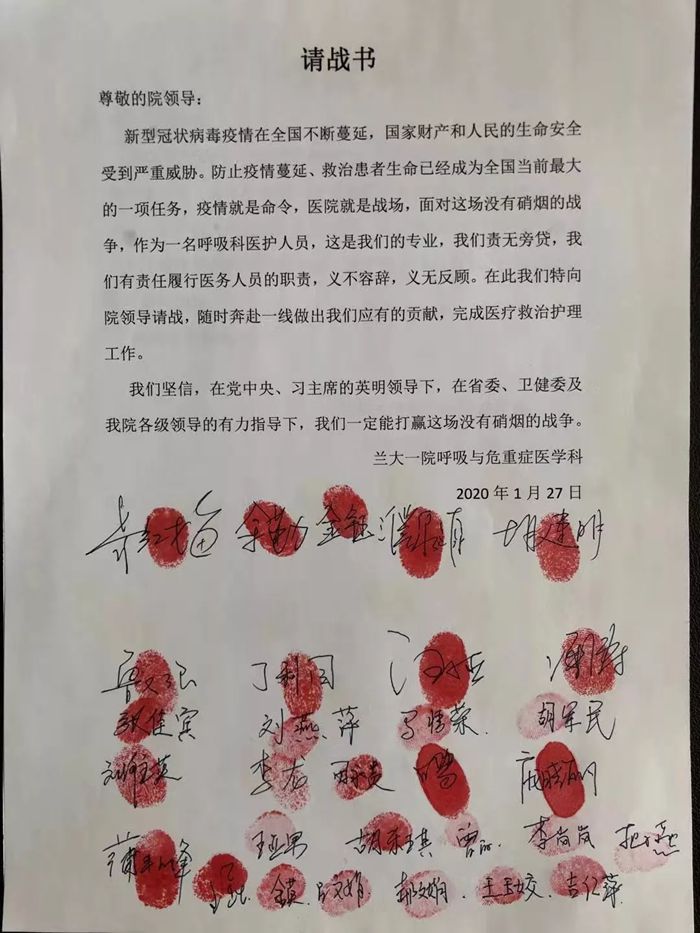 请战书
尊敬的院领导：
新型冠状病毒疫情在全国不断蔓延，国家财产和人民的生命安全
受到严重威胁。防止疫情蔓延、救治患者生命已经成为全国当前最大
的一项任务，疫情就是命令，医院就是战场，面对这场没有硝烟的战
争，作为一名呼吸科医护人员，这是我们的专业，我们责无旁贷，我
们有责任履行医务人员的职责，义不容辞，义无反顾。在此我们特向
院领导请战，随时奔赴一线做出我们应有的贡献，完成医疗救治护理
工作。
我们坚信，在党中央、习主席的英明领导下，在省委、卫健委及
我院各级领导的有力指导下，我们一定能打赢这场没有硝烟的战争。
兰大一院呼吸与危重症医学科
2020 年 1 月 27 日
余勤 金钰 胡建明
丁利国
张佳宾 刘燕萍 胡军民
李龙
王亚男 李岗岚
郝文娟. 王玉姣. 吉仁萍.